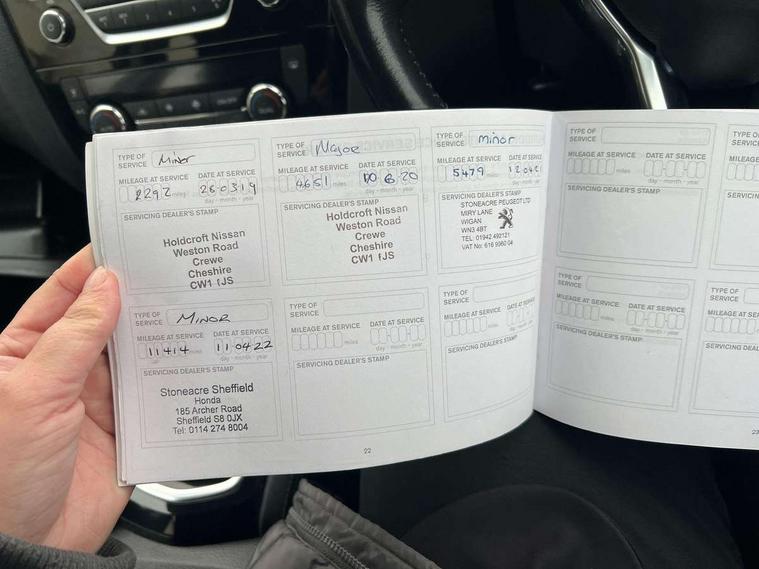 TYPE OF SERVICE Minor
MILEAGE AT SERVICE DATE AT SERVICE
2292 miles 260319
day - month - year
SERVICING DEALER'S STAMP
Holdcroft Nissan
Weston Road
Crewe
Cheshire
CW1 1JS
TYPE OF SERVICE Major
MILEAGE AT SERVICE DATE AT SERVICE
4651 miles 10 6 20
day - month - year
SERVICING DEALER'S STAMP
Holdcroft Nissan
Weston Road
Crewe
Cheshire
CW1 1JS
TYPE OF SERVICE minor
MILEAGE AT SERVICE DATE AT SERVICE
5479 miles 120421
day - month - year
SERVICING DEALER'S STAMP
STONEACRE PEUGEOT LTD
MIRY LANE
WIGAN
WN3 4BT
TEL: 01942 492121
VAT No: 616 9960 04
TYPE OF SERVICE MINOR
MILEAGE AT SERVICE DATE AT SERVICE
11414 miles 110422
day - month - year
SERVICING DEALER'S STAMP
Stoneacre Sheffield
Honda
185 Archer Road
Sheffield S8 0JX
Tel: 0114 274 8004
TYPE OF SERVICE
MILEAGE AT SERVICE DATE AT SERVICE
miles
day - month - year
SERVICING DEALER'S STAMP
TYPE OF SERVICE
MILEAGE AT SERVICE DATE AT SERVICE
miles
day - month - year
SERVICING DEALER'S STAMP
22
TYPE OF SERVICE
MILEAGE AT SERVICE DATE AT SERVICE
miles
day - month - year
SERVICING DEALER'S STAMP
TYPE OF SERVICE
MILEAGE AT SERVICE DATE AT SERVICE
miles
day - month - year
SERVICING DEALER'S STAMP
TYPE OF SERVICE
SERVICING DEALER'S
TYPE OF SERVICE
MILEAGE AT
SERVICING DEAL